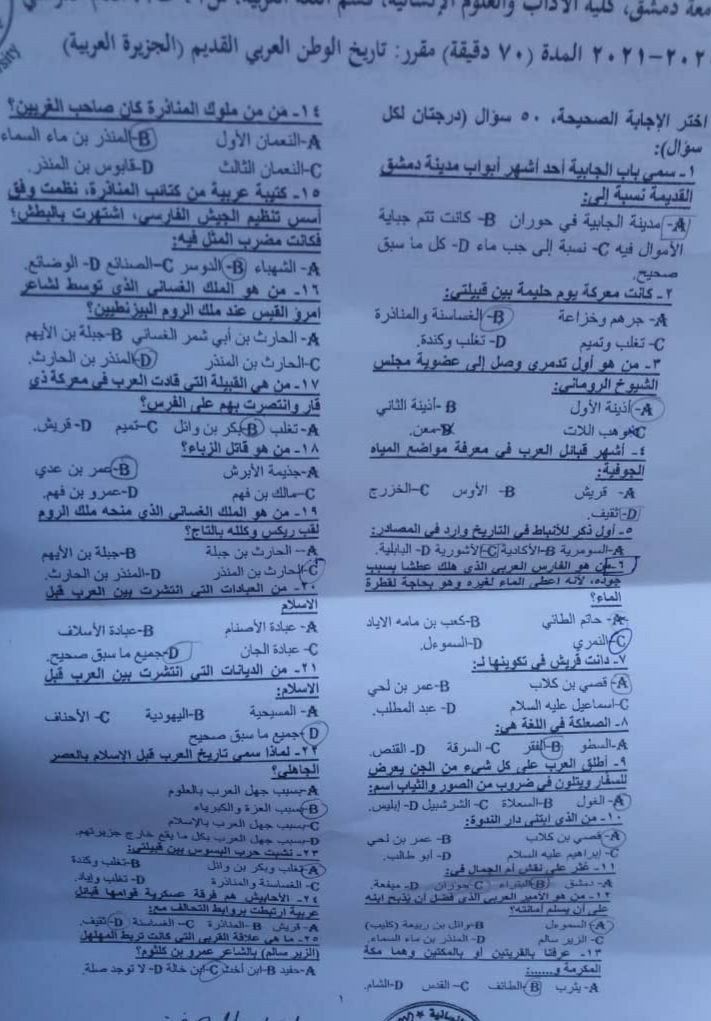 معة دمشق، كلية الآداب والعلوم الإنسانية، قسم اللغة العربية،
٢٠٢٠-٢٠٢١ المدة (٧٠ دقيقة) مقرر: تاريخ الوطن العربي القديم (الجزيرة العربية)
اختر الإجابة الصحيحة، ٥٠ سؤال (درجتان لكل
سؤال):
١- سمي باب الجابية أحد أشهر أبواب مدينة دمشق
القديمة نسبة إلى:
A- مدينة الجابية في حوران B- كانت تتم جباية
الأموال فيه C- نسبة إلى جب ماء D- كل ما سبق
صحيح.
٢- كانت معركة يوم حليمة بين قبيلتي:
A- جرهم وخزاعة B- الغساسنة والمناذرة
C- تغلب وتميم D- تغلب وكندة.
٣- من هو أول تدمري وصل إلى عضوية مجلس
الشيوخ الروماني:
A- أذينة الأول B- أذينة الثاني
C- وهب اللات D- معن.
٤- أشهر قبائل العرب في معرفة مواضع المياه
الجوفية:
A- قريش B- الأوس C- الخزرج
D- ثقيف.
٥- أول ذكر للأنباط في التاريخ وارد في المصادر:
A- السومرية B- الأكادية C- الآشورية D- البابلية.
٦- من هو الفارس العربي الذي هلك عطشا بسبب
جوده، لأنه أعطى الماء لغيره وهو بحاجة لقطرة
الماء؟
A- حاتم الطائي B- كعب بن مامه الاياد
C- النمري D- السموءل.
٧- دانت قريش في تكوينها لـ:
A- قصي بن كلاب B- عمر بن لحي
C- اسماعيل عليه السلام D- عبد المطلب.
٨- الصعلكة في اللغة هي:
A- السطو B- الفقر C- السرقة D- القنص.
٩- أطلق العرب على كل شيء من الجن يعرض
للسفار ويتلون في ضروب من الصور والثياب اسم:
A- الغول B- السعلاة C- الشرشبيل D- إبليس.
١٠- من الذي ابتنى دار الندوة:
A- قصي بن كلاب B- عمر بن لحي
C- إبراهيم عليه السلام D- أبو طالب.
١١- عثر على نقش أم الجمال في:
A- دمشق B- البتراء C- حوران D- ميفعة.
١٢- من هو الأمير العربي الذي فضل أن يذبح ابنه
على أن يسلم أمانته؟
A- السموءل B- وائل بن ربيعة (كليب)
C- الزير سالم D- المنذر بن ماء السماء.
١٣- عرفتا بالقريتين أو بالمكتين وهما مكة
المكرمة و......:
A- يثرب B- الطائف C- القدس D- الشام.
١٤- من من ملوك المناذرة كان صاحب الغريين؟
A- النعمان الأول B- المنذر بن ماء السماء
C- النعمان الثالث D- قابوس بن المنذر.
١٥- كتيبة عربية من كتائب المناذرة، نظمت وفق
أسس تنظيم الجيش الفارسي، اشتهرت بالبطش؛
فكانت مضرب المثل فيه:
A- الشهباء B- الدوسر C- الصنائع D- الوضائع.
١٦- من هو الملك الغساني الذي توسط لشاعر
امرؤ القيس عند ملك الروم البيزنطيين؟
A- الحارث بن أبي شمر الغساني B- جبلة بن الأيهم
C- الحارث بن المنذر D- المنذر بن الحارث.
١٧- من هي القبيلة التي قادت العرب في معركة ذي
قار وانتصرت بهم على الفرس؟
A- تغلب B- بكر بن وائل C- تميم D- قريش.
١٨- من هو قاتل الزباء؟
A- جذيمة الأبرش B- عمر بن عدي
C- مالك بن فهم D- عمرو بن فهم.
١٩- من هو الملك الغساني الذي منحه ملك الروم
لقب ريكس وكلله بالتاج؟
A- الحارث بن جبلة B- جبلة بن الأيهم
C- الحارث بن المنذر D- المنذر بن الحارث.
٢٠- من العبادات التي انتشرت بين العرب قبل
الاسلام
A- عبادة الأصنام B- عبادة الأسلاف
C- عبادة الجان D- جميع ما سبق صحيح.
٢١- من الديانات التي انتشرت بين العرب قبل
الاسلام:
A- المسيحية B- اليهودية C- الأحناف
D- جميع ما سبق صحيح
٢٢- لماذا سمي تاريخ العرب قبل الإسلام بالعصر
الجاهلي؟
A- بسبب جهل العرب بالعلوم
B- بسبب العزة والكبرياء
C- بسبب جهل العرب بالإسلام
D- بسبب جهل العرب بكل ما يقع خارج جزيرتهم.
٢٣- نشبت حرب البسوس بين قبيلتي:
A- تغلب وبكر بن وائل B- تغلب وكندة
C- الغساسنة والمناذرة D- تغلب وإياد.
٢٤- الأحابيش هم فرقة عسكرية قوامها قبائل
عربية ارتبطت بروابط التحالف مع:
A- قريش B- المناذرة C- الغساسنة D- ثقيف.
٢٥- ما هي علاقة القربى التي كانت تربط المهلهل
(الزير سالم) بالشاعر عمرو بن كلثوم؟
A- حفيد B- ابن أخت C- ابن خالة D- لا توجد صلة.
١